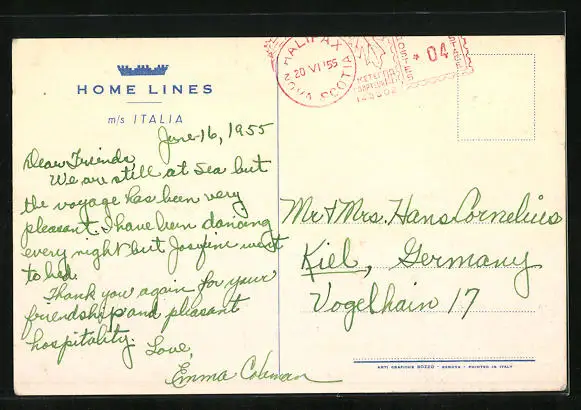 HOME LINES
m/s ITALIA
June 16, 1955
Dear Friends
We are still at sea but
the voyage has been very
pleasant. I have been dancing
every night but went
to bed.
Thank you again for your
friendship and pleasant
hospitality.
Love,
Emma Coleman
HALIFAX
20 VI '55
NOVA SCOTIA
POSTAGE
* 04
METER
Mr & Mrs. Hans Cornelius
Kiel, Germany
Vogelhain 17
ARTI GRAFICHE BOZZO - GENOVA - PRINTED IN ITALY